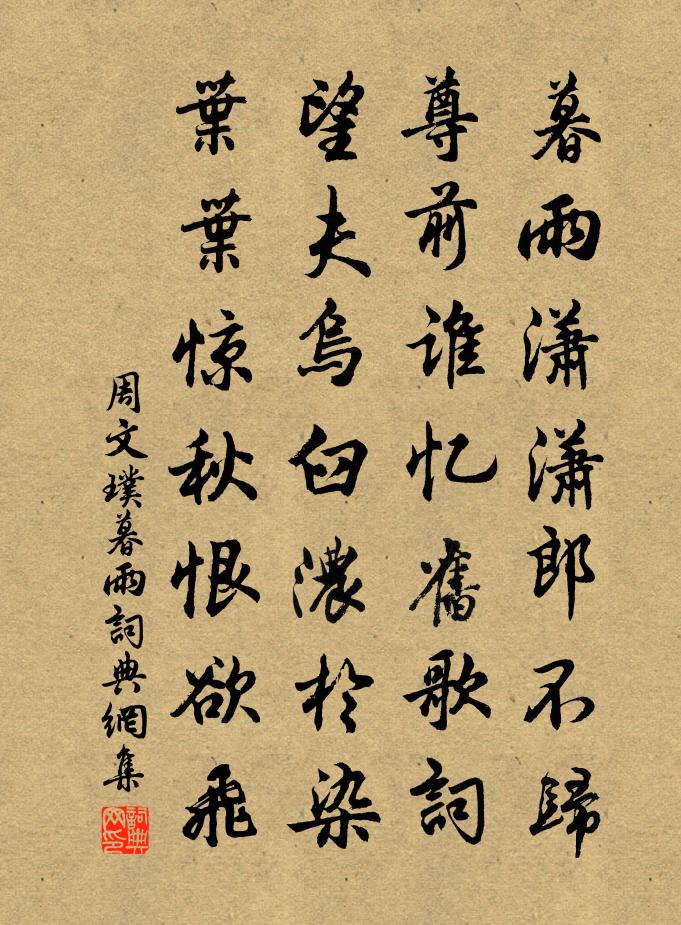 暮雨瀟瀟郎不歸
尊前誰忆舊歌詞
望夫烏臼濃於染
葉葉惊秋恨欲飛
周文璞暮雨詞典網集
詞典網印